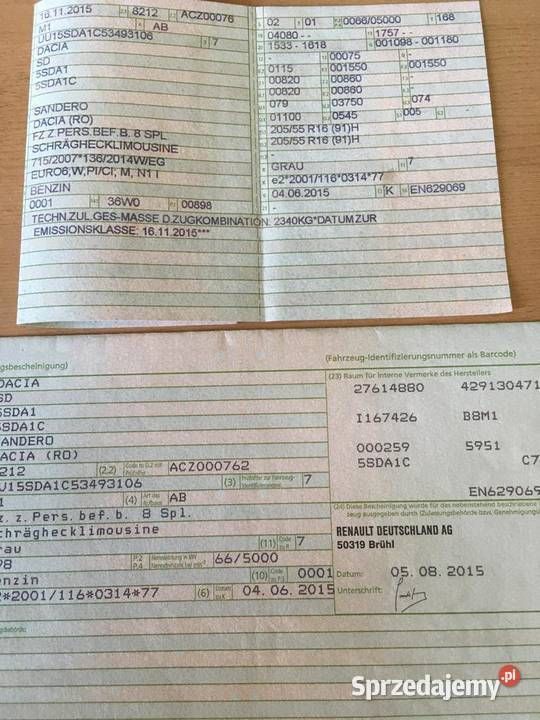 16.11.2015 8212 ACZ00076
M1 AB
UU15SDA1C53493106 7
DACIA
SD
5SDA1
5SDA1C
SANDERO
DACIA (RO)
FZ Z PERS.BEF.B. 8 SPL
SCHRÄGHECKLIMOUSINE
715/2007*136/2014W/EG
EURO6,W,PI/CI, M, N1 I
BENZIN
0001 36W0 00898
TECHN.ZUL.GES-MASSE D.ZUGKOMBINATION. 2340KG*DATUMZUR
EMISSIONSKLASSE: 16.11.2015***
02 01 0066/05000 168
04080 - - 1757 - -
1533 - 1618 001098 - 001160
- 00075 -
0115 001550 001550
00820 00860 -
00820 00860 -
079 03750 074
01100 0545 005
205/55 R16 (91)H
205/55 R16 (91)H
-
GRAU 7
e2*2001/116*0314*77
04.06.2015 K EN629069
-
ngsbescheinigung) (Fahrzeug-Identifizierungsnummer als Barcode)
DACIA
SD
5SDA1
5SDA1C
SANDERO
DACIA (RO)
8212 (2.2) ACZ000762
UU15SDA1C53493106 (3) 7
(4) AB
Fz. z. Pers. bef. b. 8 Spl.
Schräghecklimousine
Grau (11) 7
898 P.2 P.4 66/5000
Benzin (10) 0001
e2*2001/116*0314*77 (6) 04.06.2015
(23) Raum für interne Vermerke des Herstellers
27614880 429130471
I167426 B8M1
000259 5951
5SDA1C C7
EN629069
(24) Diese Bescheinigung wurde für das nebenstehend beschriebene
RENAULT DEUTSCHLAND AG
50319 Brühl
Datum: 05.08.2015
Unterschrift:
Sprzedajemy.pl